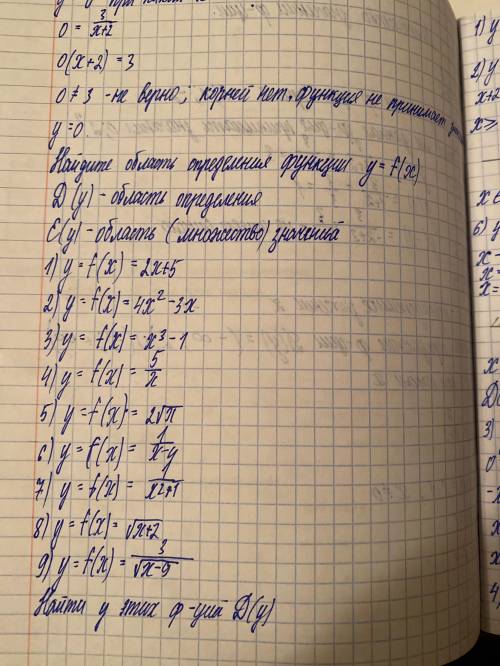 0 = 3/(x+2)
0(x+2) = 3
0 ≠ 3 - не верно; корней нет. функция не принимает
y=0.
Найдите область определения функции y = f(x)
D(y) - область определения
E(y) - область (множество) значений
1) y = f(x) = 2x+5
2) y = f(x) = 4x² - 3x
3) y = f(x) = x³ - 1
4) y = f(x) = 5/x
5) y = f(x) = 2√x
6) y = f(x) = 1/(x-4)
7) y = f(x) = 1/(x²+1)
8) y = f(x) = √x+2
9) y = f(x) = 3/√x-9
Найти у этих ф-ций D(y)
1) y
2) y
x+2
x≥
6) y
x-
x=
x=
x
3)
0
-x
x
x
4